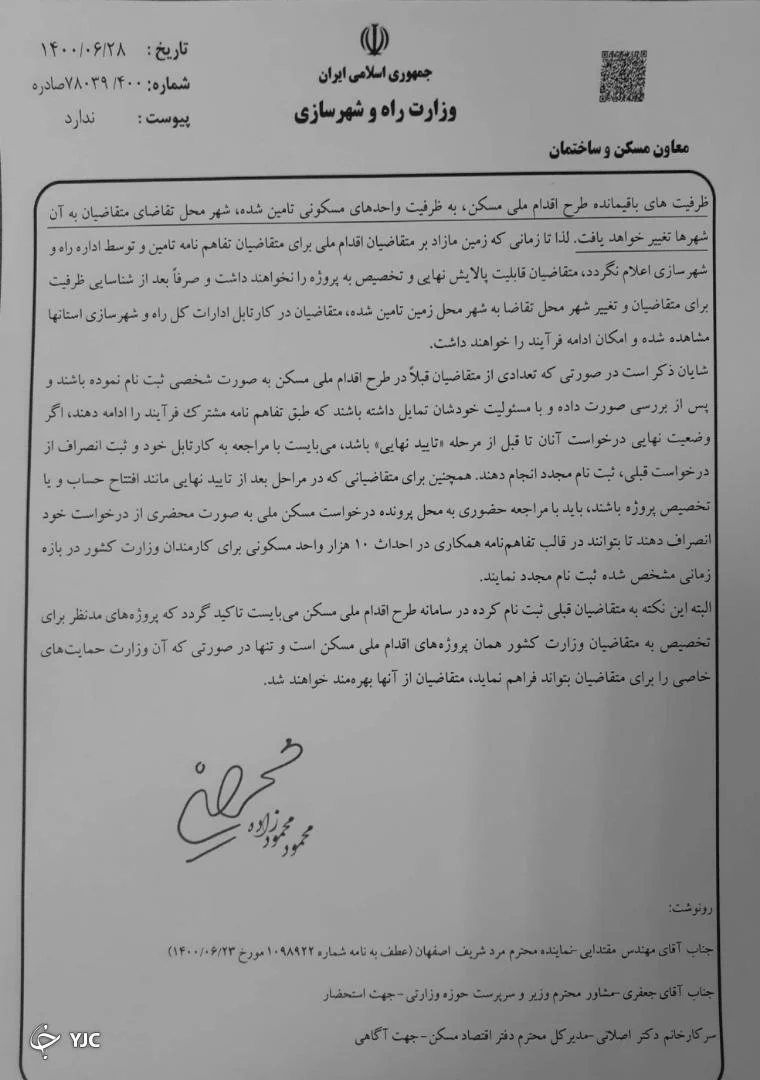 جمهوری اسلامی ایران
وزارت راه و شهرسازی
معاون مسکن و ساختمان
تاریخ : ۱۴۰۰/۰۶/۲۸
شماره: ۷۸۰۳۹ /۴۰۰صادره
پیوست : ندارد
ظرفیت های باقیمانده طرح اقدام ملی مسکن، به ظرفیت واحدهای مسکونی تامین شده، شهر محل تقاضای متقاضیان به آن
شهرها تغییر خواهد یافت. لذا تا زمانی که زمین مازاد بر متقاضیان اقدام ملی برای متقاضیان تفاهم نامه تامین و توسط اداره راه و
شهرسازی اعلام نگردد، متقاضیان قابلیت پالایش نهایی و تخصیص به پروژه را نخواهند داشت و صرفاً بعد از شناسایی ظرفیت
برای متقاضیان و تغییر شهر محل تقاضا به شهر محل زمین تامین شده، متقاضیان در کارتابل ادارات کل راه و شهرسازی استانها
مشاهده شده و امکان ادامه فرآیند را خواهند داشت.
شایان ذکر است در صورتی که تعدادی از متقاضیان قبلاً در طرح اقدام ملی مسکن به صورت شخصی ثبت نام نموده باشند و
پس از بررسی صورت داده و با مسئولیت خودشان تمایل داشته باشند که طبق تفاهم نامه مشترک فرآیند را ادامه دهند، اگر
وضعیت نهایی درخواست آنان تا قبل از مرحله «تایید نهایی» باشد، می‌بایست با مراجعه به کارتابل خود و ثبت انصراف از
درخواست قبلی، ثبت نام مجدد انجام دهند. همچنین برای متقاضیانی که در مراحل بعد از تایید نهایی مانند افتتاح حساب و یا
تخصیص پروژه باشند، باید با مراجعه حضوری به محل پرونده درخواست مسکن ملی به صورت محضری از درخواست خود
انصراف دهند تا بتوانند در قالب تفاهم‌نامه همکاری در احداث ۱۰ هزار واحد مسکونی برای کارمندان وزارت کشور در بازه
زمانی مشخص شده ثبت نام مجدد نمایند.
البته این نکته به متقاضیان قبلی ثبت نام کرده در سامانه طرح اقدام ملی مسکن می‌بایست تاکید گردد که پروژه‌های مدنظر برای
تخصیص به متقاضیان وزارت کشور همان پروژه‌های اقدام ملی مسکن است و تنها در صورتی که آن وزارت حمایت‌های
خاصی را برای متقاضیان بتواند فراهم نماید، متقاضیان از آنها بهره‌مند خواهند شد.
محمود محمودزاده
رونوشت:
جناب آقای مهندس مقتدایی -نماینده محترم مرد شریف اصفهان (عطف به نامه شماره ۱۰۹۸۹۲۲ مورخ ۱۴۰۰/۰۶/۲۳)
جناب آقای جعفری -مشاور محترم وزیر و سرپرست حوزه وزارتی - جهت استحضار
سرکارخانم دکتر اصلانی -مدیرکل محترم دفتر اقتصاد مسکن - جهت آگاهی
YJC